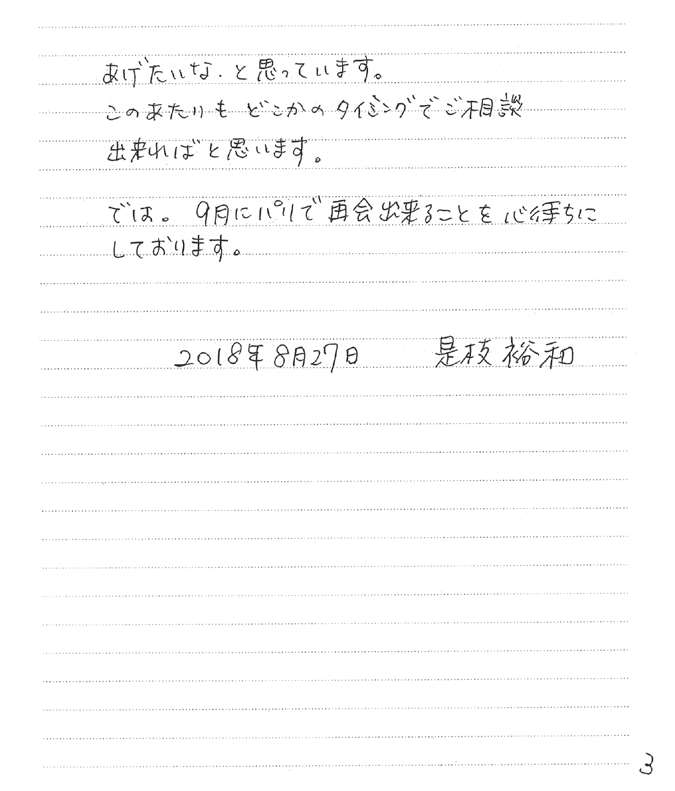 あげたいな、と思っています。
このあたりも どこかのタイミングでご相談
出来ればと思います。
では。 9月にパリで再会出来ることを心待ちに
しております。
2018年8月27日 是枝裕和
3